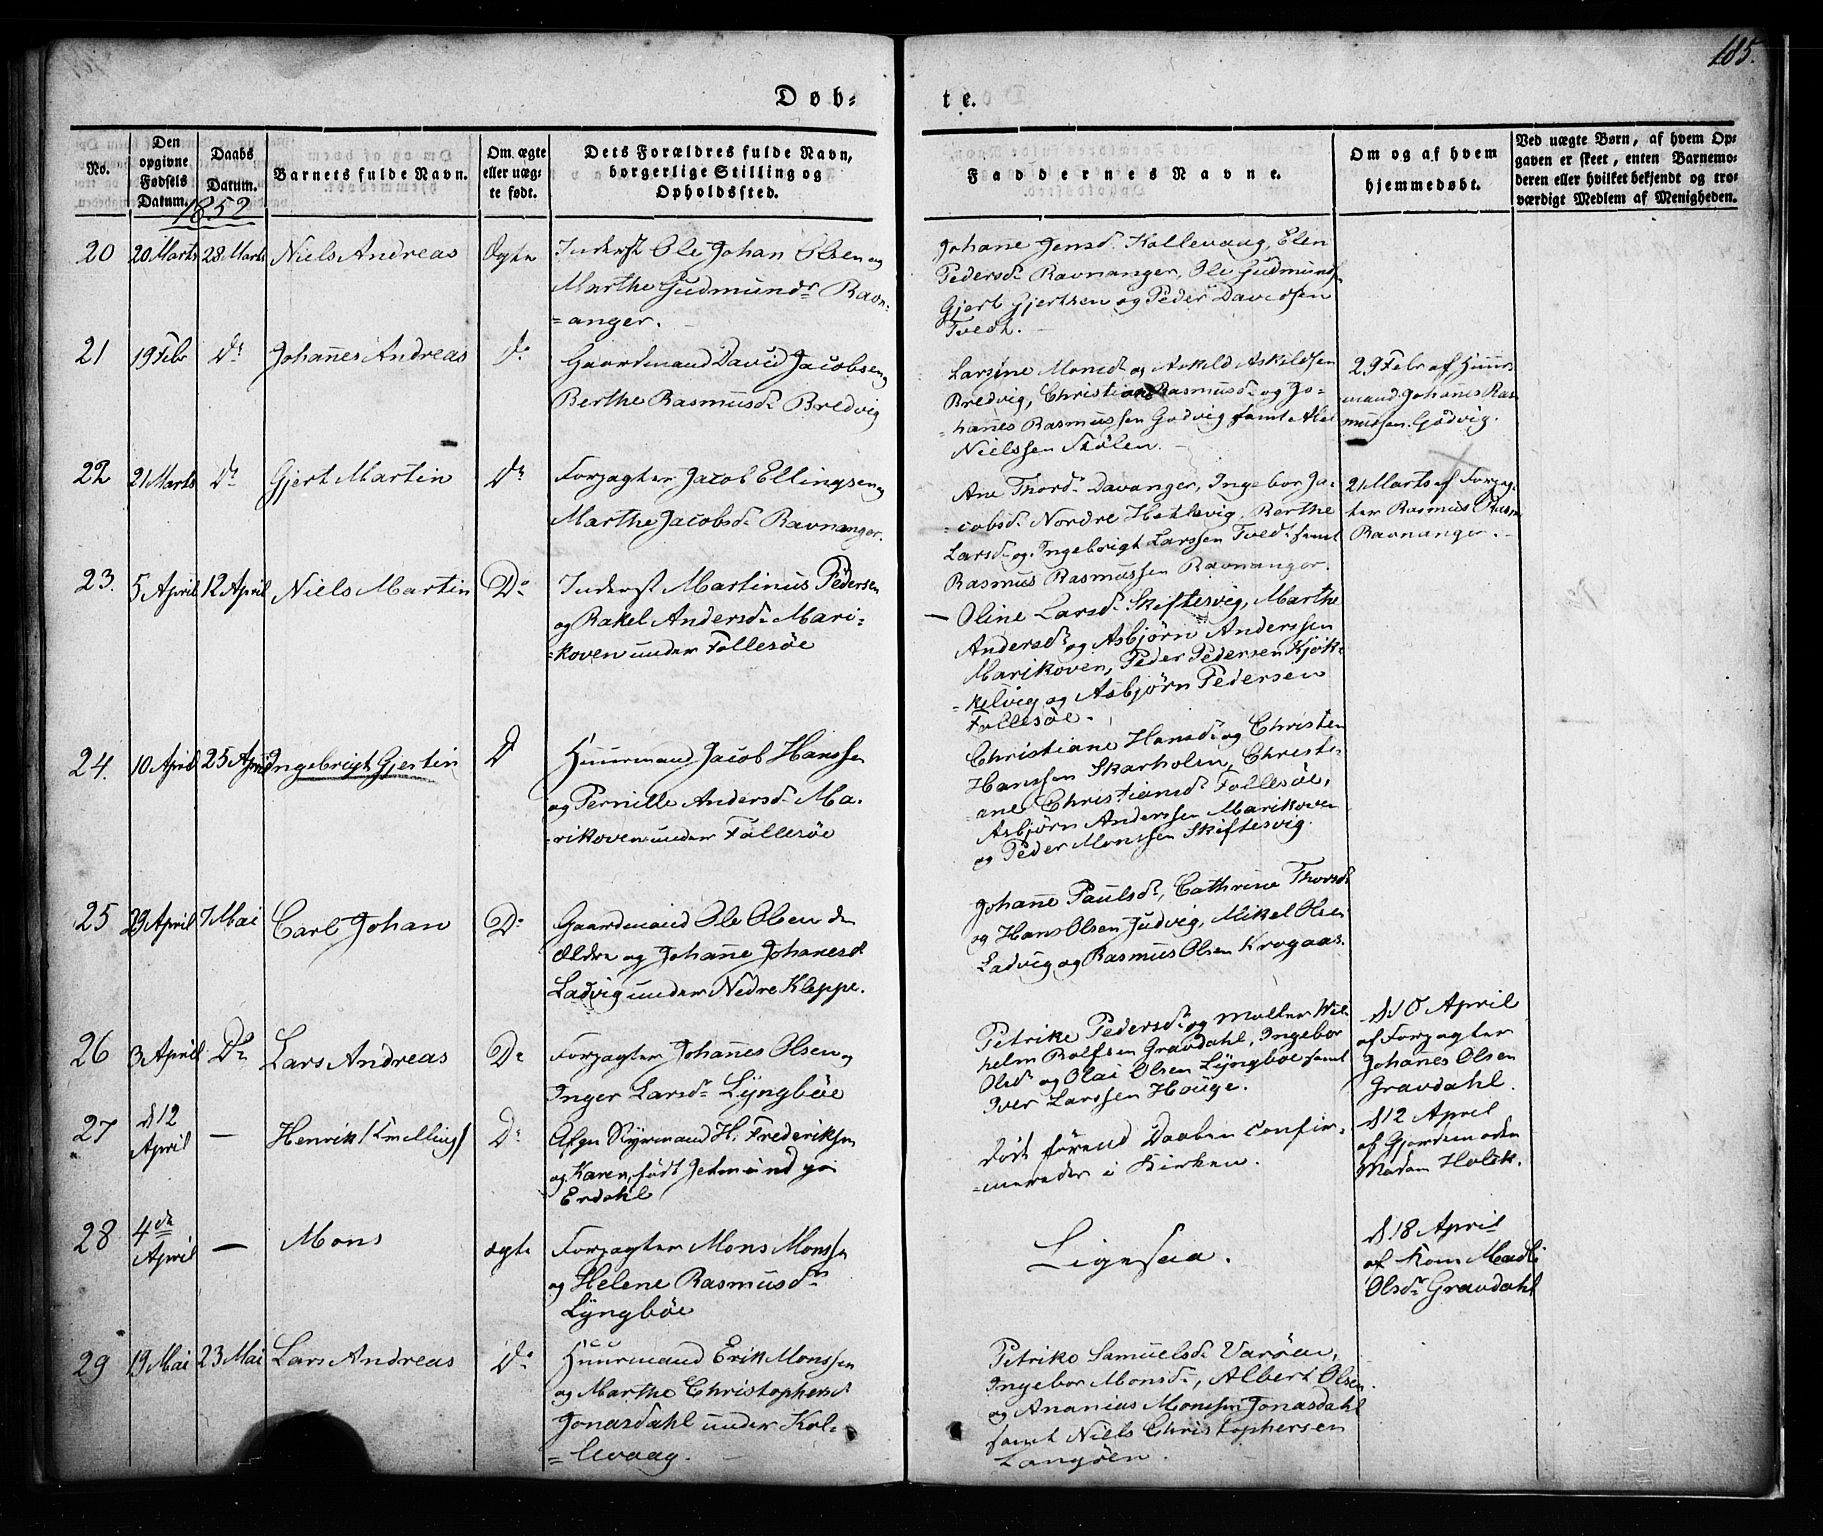 185.
Døb-
te.
No.
Den
opgivne
Fødsels
Datum.
Daabs
Datum.
Barnets fulde Navn.
Om ægte
eller uæg-
te født.
Dets Forældres fulde Navn,
borgerlige Stilling og
Opholdssted.
Faddernes Navne.
Om og af hvem
hjemmedøbt.
Ved uægte Børn, af hvem Op-
gaven er skeet, enten Barnemo-
deren eller hvilket bekjendt og tro-
værdigt Medlem af Menigheden.
1852
20
20 Marts
28 Marts
Niels Andreas
Ægte
Inderst Ole Johan Olsen og
Marthe Gudmundsdr Ravn-
=anger.
Johane Jensd. Kallevaag, Elen
Pedersd. Ravnanger, Ole Gudmunds
Gjert Gjertsen og Peder Davidsen
Tvedt.
21
19 Febr
Do
Johannes Andreas
Do
Gaardmand David Jacobsen og
Berthe Rasmusd. Bredvig
Larsine Monsd. og Askild Askildsen
Bredvig, Christiane Rasmusd. og Jo-
=hanes Rasmussen Godvig samt
Nielssen Stølen.
29 Febr af Huus-
mand Johanes Ras-
mussen Godvig.
22
21 Marts
Do
Gjert Martin
Do
Forpagter Jacob Ellingsen og
Marthe Jacobsd. Ravnanger.
Ane Thorsd. Davanger, Ingebor Ja-
=cobsd. Nordre Hetlevig, Berthe
Larsd. og Ingebrigt Larssen Tvedt samt
Rasmus Rasmussen Ravnanger.
21 Marts af Forpag-
ter Rasmus Rasm
Ravnanger.
23.
5 April
12 April
Niels Martin
Do
Inderst Martinus Pedersen
og Rakel Andersd. Mari-
=koven under Follesøe
Oline Larsd. Skiftesvig, Marthe
Andersd. og Asbjørn Anderssen
Marikoven, Peder Pedersen Kjøk-
=kelvig og Asbjørn Pedersen
Follesøe.
24.
10 April
25 April
Ingebrigt Gjertin
D
Huusmand Jacob Hanssen
og Pernille Andersd. Ma-
=rikoven under Follesøe
Christiane Hansd. og Christen
Hanssen Skarholen, Christi-
ane Christiansd. Follesøe,
Asbjørn Anderssen Marikoven
og Peder Monssen Skiftesvig.
25
29 April
7 Mai
Carl Johan
Do
Gaardmand Ole Olsen den
Ældre og Johanne Johanesd.
Ladvig under Nedre Kleppe.
Johanne Paulsd., Cathrine Thorsd.
og Hans Olsen Judvig, Mikel Olsen
Ladvig og Rasmus Olsen Krogaas.
26
3 April
Do
Lars Andreas
Do
Forpagter Johannes Olsen og
Inger Larsd. Lyngbøe
Petrike Pedersd. og Møller Wil-
helm Rolfsen Gravdahl, Ingebor
Olsd. og Olai Olsen Lyngbøe samt
Iver Larssen Houge.
d 10 April
af Forpagter
Johanes Olsen
Gravdahl.
27
d 12
April
—
Henrik
Do
H. Frederiksen
og Karen, født Jetmund paa
Erdahl
død førend Daaben confir-
=meredes i Kirken.
d 12 April
af Gjordemoder
Madam Holck.
28
4de
April
—
Mons
ægte
Forpagter Mons Monssen
og Helene Rasmusdr
Lyngbøe
Ligesaa.
d 18 April
af Kone Madli
Olsdr Gravdahl
29
19 Mai
23 Mai
Lars Andreas
Do
Huusmand Erik Monssen
og Marthe Christophersd.
Jonasdahl under Kol-
=levaag.
Petrike Samuelsd. Varøen,
Ingebor Monsd., Albert Olsen
og Ananias Monssen Jonasdahl
samt Niels Christophersen
Langøen.